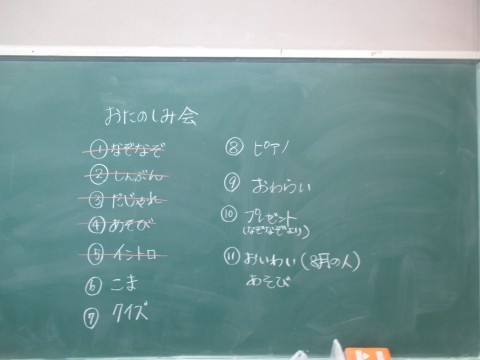 おたのしみ会
①なぞなぞ
②しんぶん
③だじゃれ
④あそび
⑤イントロ
⑥こま
⑦クイズ
⑧ピアノ
⑨おわらい
⑩プレゼント
(なぞなぞより)
⑪おいわい(8月の人)
あそび